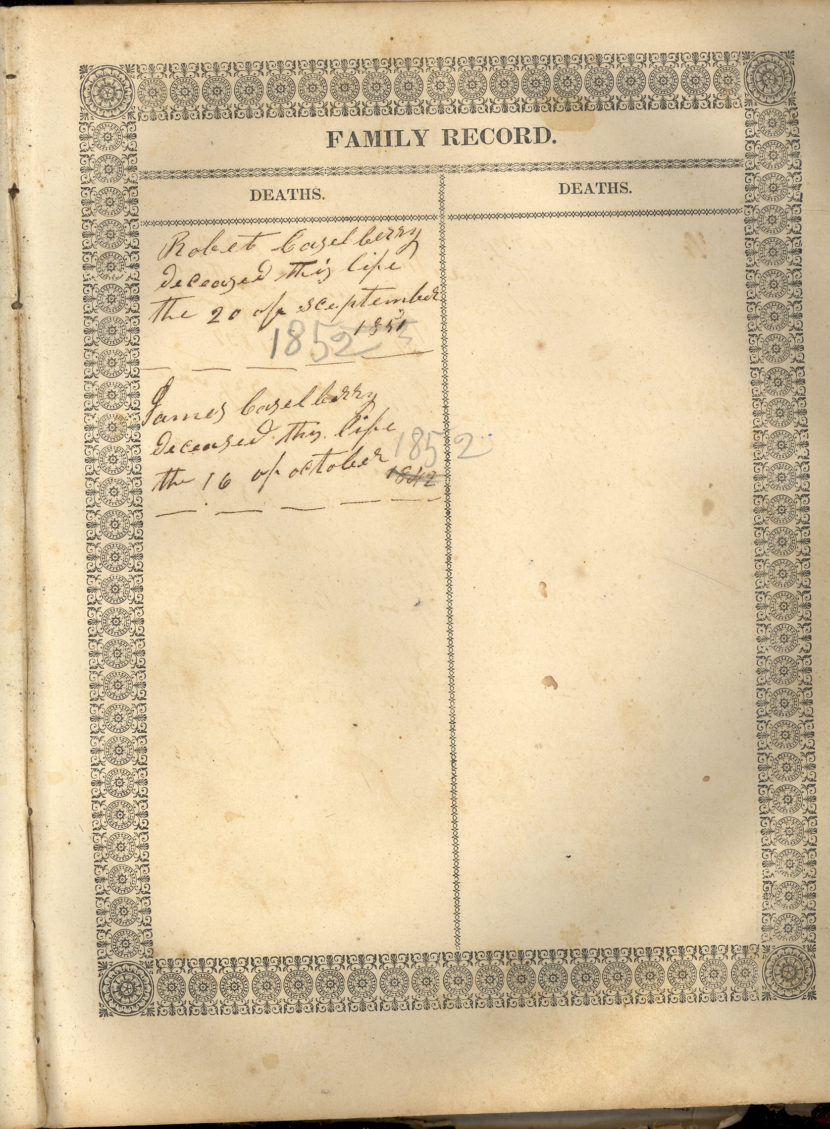 FAMILY RECORD.
DEATHS.
DEATHS.
Robert Caselberry
deceased this life
the 20 of sceptember
1851
1852
James Caselberry
deceased this life
1852
the 16 of october 1842